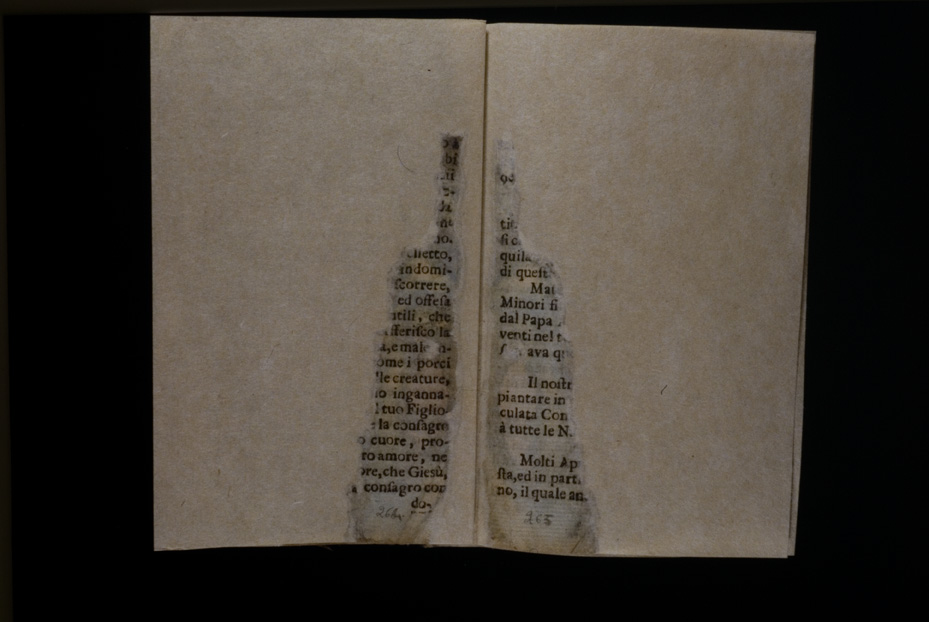 bi
lietto,
indomi-
ſcorrere,
ed offeſa
utili, che
fferiſco la
a, e male
ome i porci
lle creature,
io inganna-
l tuo Figlio
e la conſagro
o cuore, pro-
ro amore, ne
ore, che Gieſù,
a conſagro con
do,
264
tic
ſi c
quila
di queſt
Ma
Minori ſi
dal Papa
venti nel t
ava qu
Il noſtr
piantare in
culata Con
à tutte le N.
Molti Ap
ſta, ed in part
no, il quale an
265